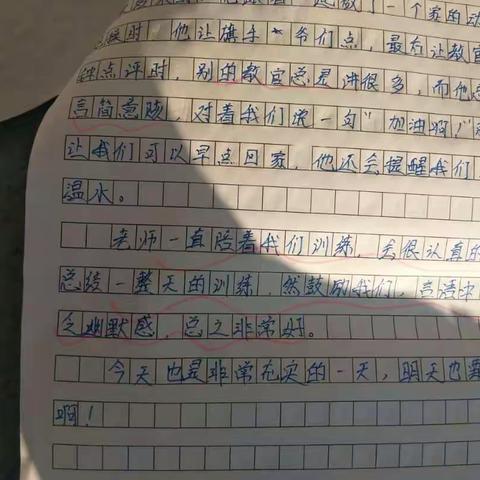 了一个家的动
候时，他让旗手爷们点，最后让教官
钟点评时，别的教官总是讲很多，而他总
言简意赅，对着我们滚一句"加油啊！"
让我们可以早点回家，他还会提醒我们
温水。
老师一直陪着我们训练，会很认真的
总结一整天的训练 然鼓励我们，言语中
乏幽默感，总之非常好。
今天也是非常充实的一天，明天也要
啊！